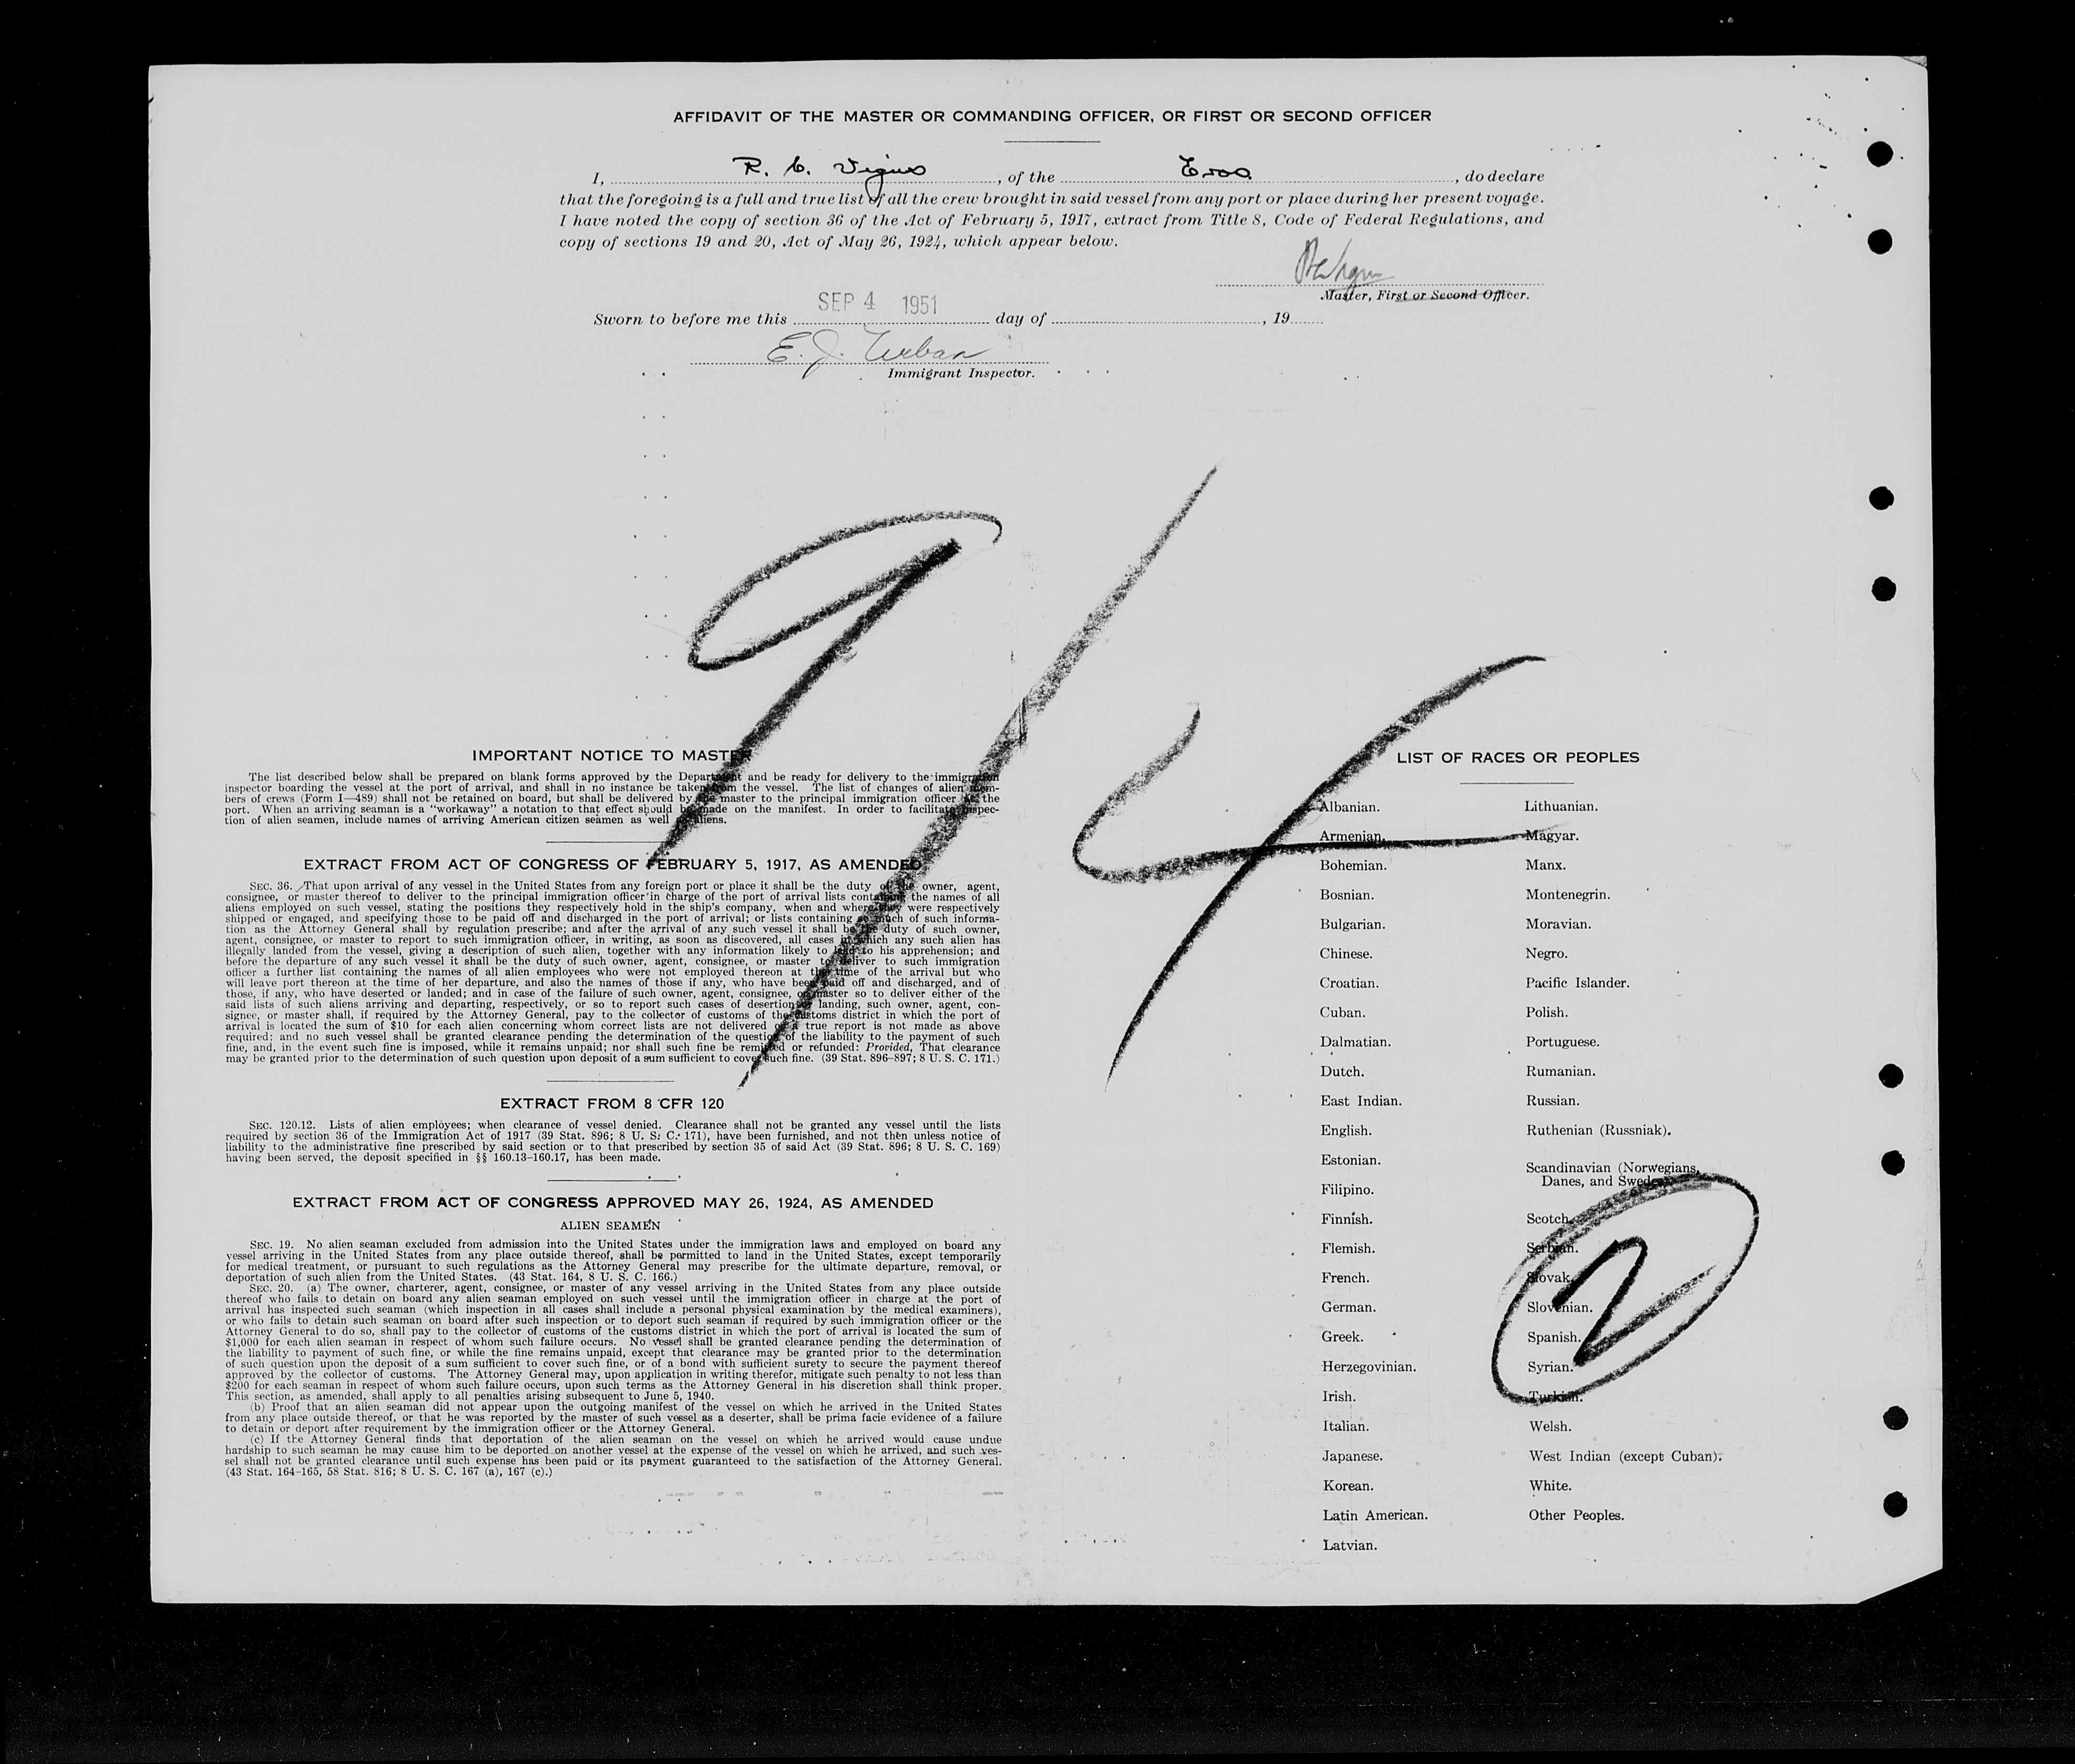 AFFIDAVIT OF THE MASTER OR COMMANDING OFFICER, OR FIRST OR SECOND OFFICER
I, R. C. Vigus, of the Eros, do declare
that the foregoing is a full and true list of all the crew brought in said vessel from any port or place during her present voyage.
I have noted the copy of section 36 of the Act of February 5, 1917, extract from Title 8, Code of Federal Regulations, and
copy of sections 19 and 20, Act of May 26, 1924, which appear below.
Master, First or Second Officer.
SEP 4 1951
Sworn to before me this day of , 19
E. J. Urban
Immigrant Inspector.
9/4
IMPORTANT NOTICE TO MASTER
The list described below shall be prepared on blank forms approved by the Department and be ready for delivery to the immigration
inspector boarding the vessel at the port of arrival, and shall in no instance be taken from the vessel. The list of changes of alien mem-
bers of crews (Form I—489) shall not be retained on board, but shall be delivered by the master to the principal immigration officer at the
port. When an arriving seaman is a "workaway" a notation to that effect should be made on the manifest. In order to facilitate inspec-
tion of alien seamen, include names of arriving American citizen seamen as well as aliens.
EXTRACT FROM ACT OF CONGRESS OF FEBRUARY 5, 1917, AS AMENDED
SEC. 36. That upon arrival of any vessel in the United States from any foreign port or place it shall be the duty of the owner, agent,
consignee, or master thereof to deliver to the principal immigration officer in charge of the port of arrival lists containing the names of all
aliens employed on such vessel, stating the positions they respectively hold in the ship's company, when and where they were respectively
shipped or engaged, and specifying those to be paid off and discharged in the port of arrival; or lists containing so much of such informa-
tion as the Attorney General shall by regulation prescribe; and after the arrival of any such vessel it shall be the duty of such owner,
agent, consignee, or master to report to such immigration officer, in writing, as soon as discovered, all cases in which any such alien has
illegally landed from the vessel, giving a description of such alien, together with any information likely to lead to his apprehension; and
before the departure of any such vessel it shall be the duty of such owner, agent, consignee, or master to deliver to such immigration
officer a further list containing the names of all alien employees who were not employed thereon at the time of the arrival but who
will leave port thereon at the time of her departure, and also the names of those if any, who have been paid off and discharged, and of
those, if any, who have deserted or landed; and in case of the failure of such owner, agent, consignee, or master so to deliver either of the
said lists of such aliens arriving and departing, respectively, or so to report such cases of desertion or landing, such owner, agent, con-
signee, or master shall, if required by the Attorney General, pay to the collector of customs of the customs district in which the port of
arrival is located the sum of $10 for each alien concerning whom correct lists are not delivered or a true report is not made as above
required; and no such vessel shall be granted clearance pending the determination of the question of the liability to the payment of such
fine, and, in the event such fine is imposed, while it remains unpaid; nor shall such fine be remitted or refunded: Provided, That clearance
may be granted prior to the determination of such question upon deposit of a sum sufficient to cover such fine. (39 Stat. 896–897; 8 U. S. C. 171.)
EXTRACT FROM 8 CFR 120
SEC. 120.12. Lists of alien employees; when clearance of vessel denied. Clearance shall not be granted any vessel until the lists
required by section 36 of the Immigration Act of 1917 (39 Stat. 896; 8 U. S. C. 171), have been furnished, and not then unless notice of
liability to the administrative fine prescribed by said section or to that prescribed by section 35 of said Act (39 Stat. 896; 8 U. S. C. 169)
having been served, the deposit specified in §§ 160.13–160.17, has been made.
EXTRACT FROM ACT OF CONGRESS APPROVED MAY 26, 1924, AS AMENDED
ALIEN SEAMEN
SEC. 19. No alien seaman excluded from admission into the United States under the immigration laws and employed on board any
vessel arriving in the United States from any place outside thereof, shall be permitted to land in the United States, except temporarily
for medical treatment, or pursuant to such regulations as the Attorney General may prescribe for the ultimate departure, removal, or
deportation of such alien from the United States. (43 Stat. 164, 8 U. S. C. 166.)
SEC. 20. (a) The owner, charterer, agent, consignee, or master of any vessel arriving in the United States from any place outside
thereof who fails to detain on board any alien seaman employed on such vessel until the immigration officer in charge at the port of
arrival has inspected such seaman (which inspection in all cases shall include a personal physical examination by the medical examiners),
or who fails to detain such seaman on board after such inspection or to deport such seaman if required by such immigration officer or the
Attorney General to do so, shall pay to the collector of customs of the customs district in which the port of arrival is located the sum of
$1,000 for each alien seaman in respect of whom such failure occurs. No vessel shall be granted clearance pending the determination of
the liability to payment of such fine, or while the fine remains unpaid, except that clearance may be granted prior to the determination
of such question upon the deposit of a sum sufficient to cover such fine, or of a bond with sufficient surety to secure the payment thereof
approved by the collector of customs. The Attorney General may, upon application in writing therefor, mitigate such penalty to not less than
$200 for each seaman in respect of whom such failure occurs, upon such terms as the Attorney General in his discretion shall think proper.
This section, as amended, shall apply to all penalties arising subsequent to June 5, 1940.
(b) Proof that an alien seaman did not appear upon the outgoing manifest of the vessel on which he arrived in the United States
from any place outside thereof, or that he was reported by the master of such vessel as a deserter, shall be prima facie evidence of a failure
to detain or deport after requirement by the immigration officer or the Attorney General.
(c) If the Attorney General finds that deportation of the alien seaman on the vessel on which he arrived would cause undue
hardship to such seaman he may cause him to be deported on another vessel at the expense of the vessel on which he arrived, and such ves-
sel shall not be granted clearance until such expense has been paid or its payment guaranteed to the satisfaction of the Attorney General.
(43 Stat. 164–165, 58 Stat. 816; 8 U. S. C. 167 (a), 167 (c).)
LIST OF RACES OR PEOPLES
Albanian.
Armenian.
Bohemian.
Bosnian.
Bulgarian.
Chinese.
Croatian.
Cuban.
Dalmatian.
Dutch.
East Indian.
English.
Estonian.
Filipino.
Finnish.
Flemish.
French.
German.
Greek.
Herzegovinian.
Irish.
Italian.
Japanese.
Korean.
Latin American.
Latvian.
Lithuanian.
Magyar.
Manx.
Montenegrin.
Moravian.
Negro.
Pacific Islander.
Polish.
Portuguese.
Rumanian.
Russian.
Ruthenian (Russniak).
Scandinavian (Norwegians,
Danes, and Swedes).
Scotch.
Serbian.
Slovak.
Slovenian.
Spanish.
Syrian.
Turkish.
Welsh.
West Indian (except Cuban).
White.
Other Peoples.
2